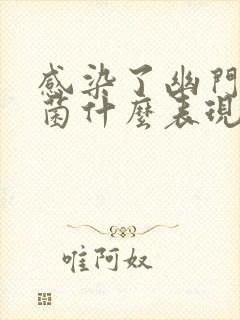 感染了幽门
菌什麼表現
唯阿奴